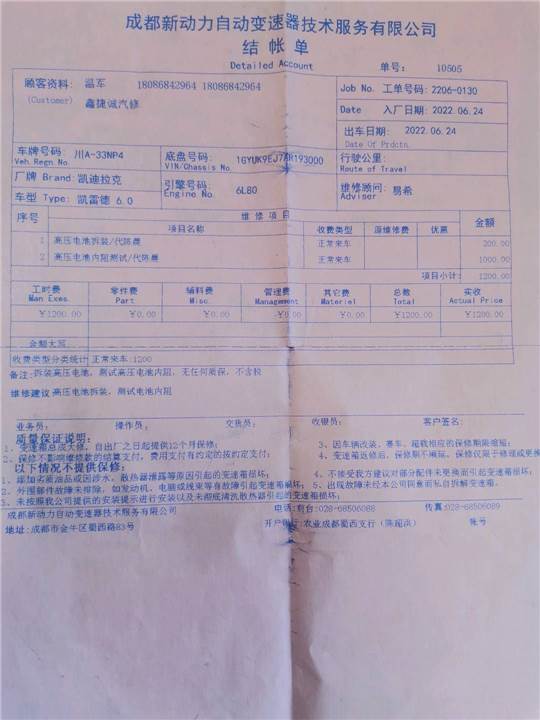 成都新动力自动变速器技术服务有限公司
结帐单
Detailed Account 单号: 10505
顾客资料: 温军 18086842964 18086842964
(Customer) 鑫捷诚汽修
Job No. 工单号码: 2206-0130
Date 入厂日期: 2022.06.24
出车日期: 2022.06.24
Date Of Prdctn.
车牌号码: 川A-33NP4 底盘号码: 1GYUK9EJ7AR193000 行驶公里:
Veh.Regn No. VIN/Chassis No. Route of Travel
厂牌 Brand: 凯迪拉克 引擎号码: 6L80 维修顾问: 易希
Engine No. Adviser
车型 Type: 凯雷德 6.0
序号 维修项目 金额
项目名称 收费类型 原维修费 优惠
1 高压电池拆装/代陈晨 正常来车 200.00
2 高压电池内阻测试/代陈晨 正常来车 1000.00
项目小计: 1200.00
工时费 零件费 辅料费 管理费 其它费 总数 实收
Man Exes. Part Misc. Management Materiel Total Actual Price
¥1200.00 ¥0.00 ¥0.00 ¥0.00 ¥0.00 ¥1200.00 ¥1200.00
金额大写
收费类型分类统计 正常来车:1200
备注: 拆装高压电池, 测试高压电池内阻, 无任何质保, 不含税
维修建议 高压电池拆装, 测试电池内阻
业务员: 操作员: 交货员: 收银员: 客户签名:
质量保证说明:
1、变速箱总成大修, 自出厂之日起提供12个月保修; 3、因车辆改装、赛车、超载所造成的保修期限缩短;
2、保修不影响维修款的结算支付, 费用支付有约定的按约定支付; 4、变速箱返修后, 保修期不顺延, 保修仅限于修理或更换
以下情况不提供保修:
1、添加劣质油品或因涉水、散热器泄露等原因引起的变速箱损坏; 4、不接受我方建议对部分配件未更换而引起变速箱损坏;
2、外围部件故障未排除, 如发动机、电脑或线束等有故障引起变速箱损坏; 5、出现故障未经本公司同意而私自拆解变速箱.
3、未按照我公司提供的安装提示进行安装以及未彻底清洗散热器引起的变速箱损坏;
成都新动力自动变速器技术服务有限公司 电话:前台:028-68506088 传真:028-68506089
地址: 成都市金牛区蜀西路83号 开户银行:农业成都蜀西支行 帐号